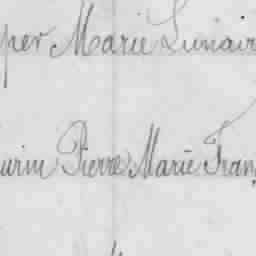 per Marie Lunair
urin Pierre Marie Fran